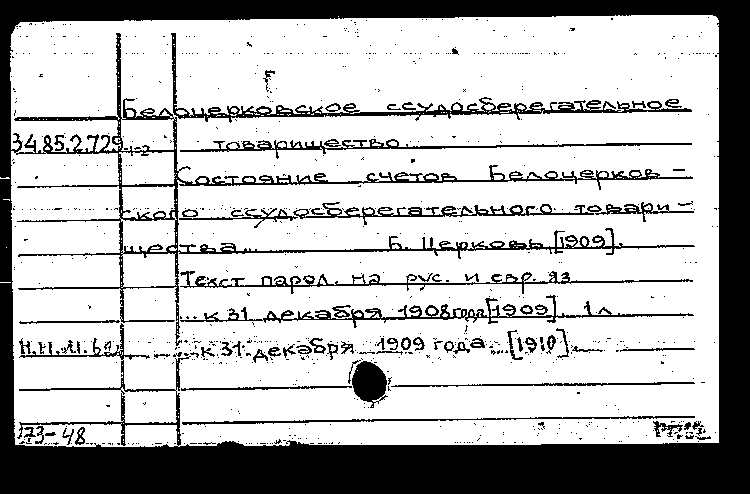 Белоцерковское ссудосберегательное
34.85.2.729 1=2 товарищество...
Состояние счетов Белоцерков-
ского ссудосберегательного товари-
щества... Б. Церковь, [1909].
Текст парал. на рус. и евр. яз
...к 31 декабря 1908 года [1909]. 1 л
...к 31 декабря 1909 года. [1910].
173-48